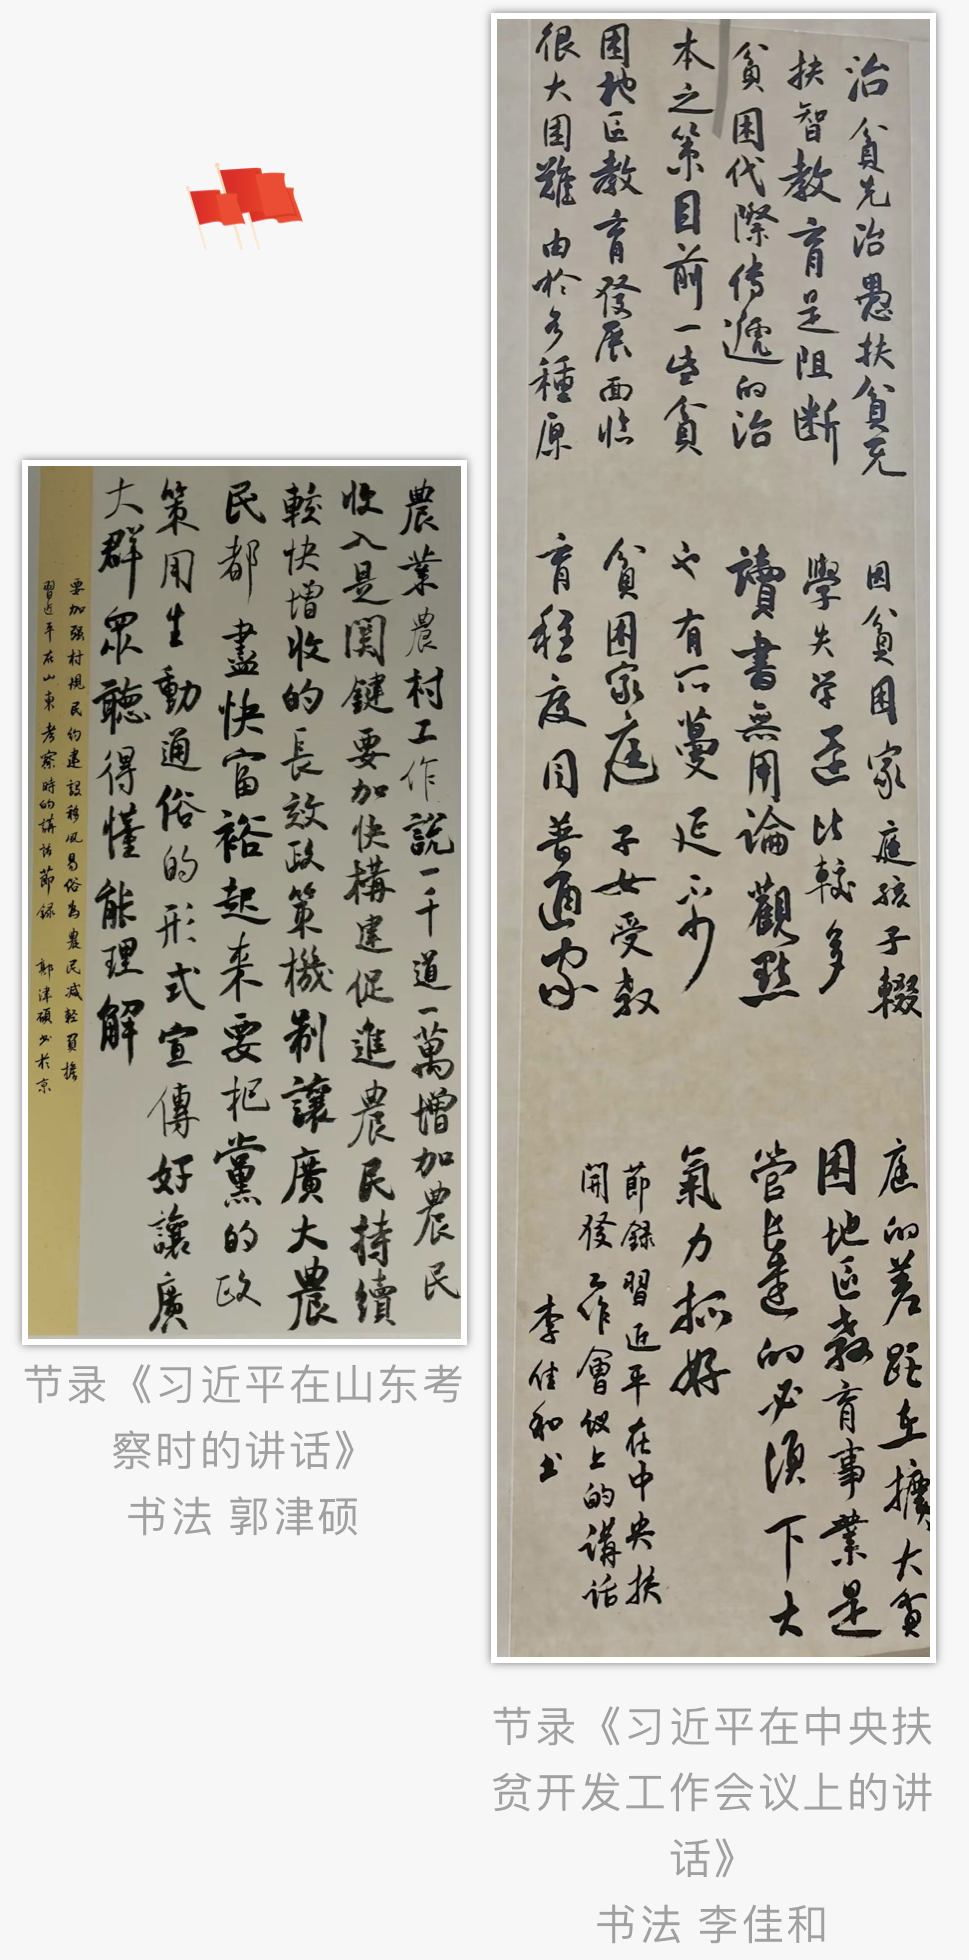 農業農村工作説一千道一萬增加農民
收入是関鍵要加快構建促進農民持續
較快增收的長效政策機制讓廣大農
民都盡快富裕起来要把黨的政
策用生動通俗的形式宣傳好讓廣
大群眾聽得懂能理解
要加强村規民約建設移风易俗為農民减轻負擔
習近平在山東考察時的講話節録 郭津碩书於京
节录《习近平在山东考
察时的讲话》
书法 郭津硕
治貧先治愚扶貧先
扶智教育是阻断
貧困代際传遞的治
本之策目前一些貧
困地区教育發展面临
很大困難由於多種原
因貧困家庭孩子輟
學失学还比較多
讀書無用論觀點
也有所蔓延不少
貧困家庭子女受教
育程度同普通家
庭的差距在擴大貧
困地區教育事業是
管长遠的必須下大
氣力抓好
節録習近平在中央扶
開發工作會议上的講話
李佳和书
节录《习近平在中央扶
贫开发工作会议上的讲
话》
书法 李佳和